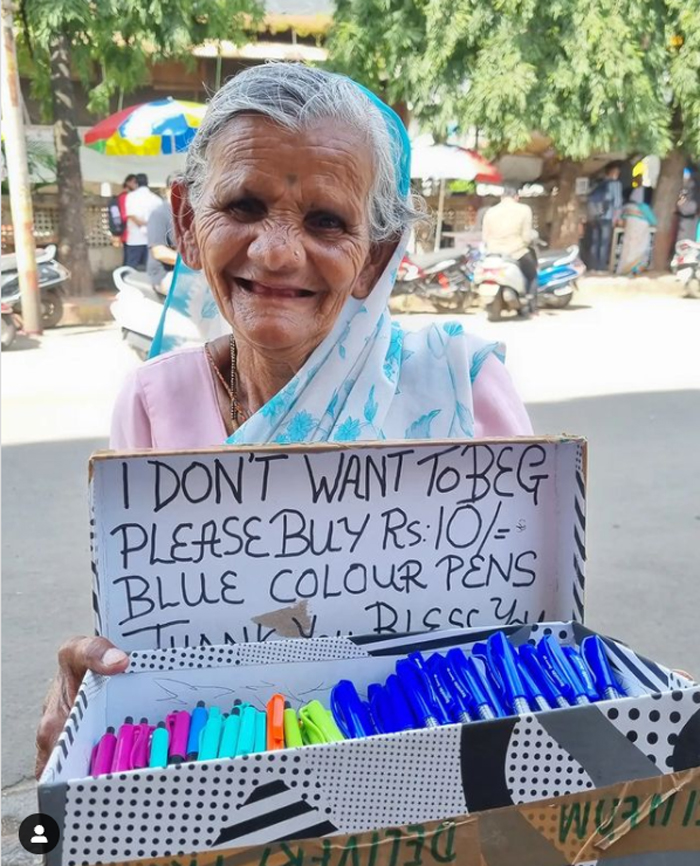 I DON'T WANT TO BEG
PLEASE BUY Rs:10/=
BLUE COLOUR PENS
THANK YOU BLESS YOU
DELIVERY